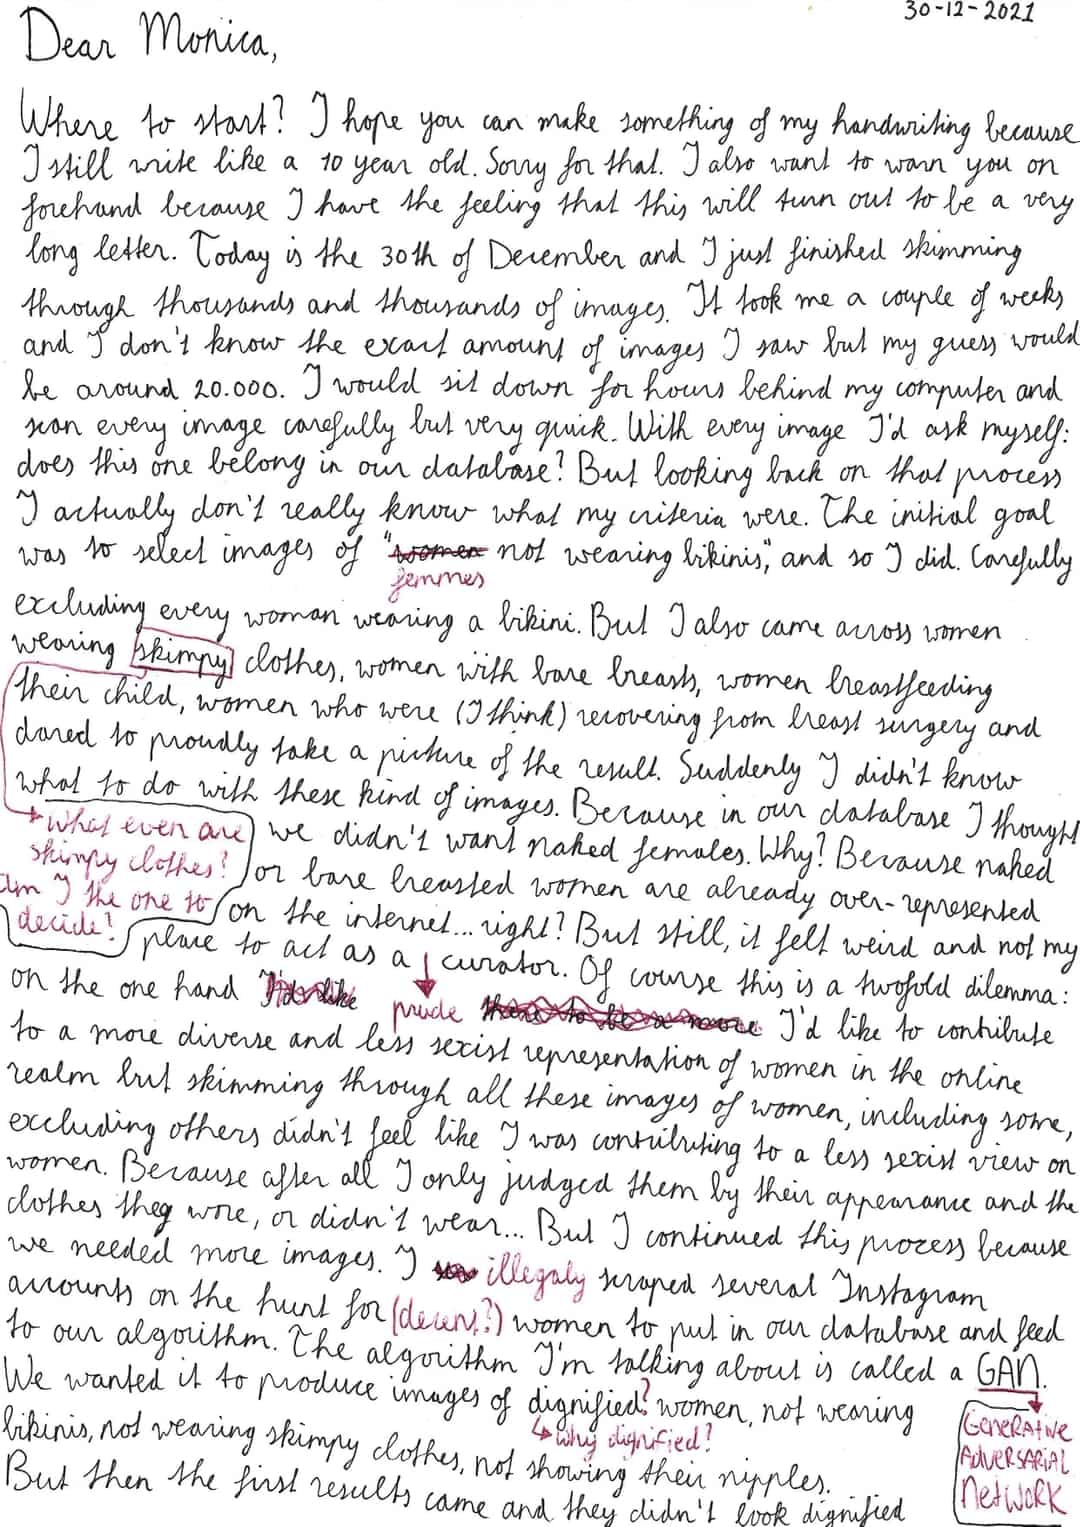 30-12-2021
Dear Monica,
Where to start? I hope you can make something of my handwriting because
I still write like a 10 year old. Sorry for that. I also want to warn you on
forehand because I have the feeling that this will turn out to be a very
long letter. Today is the 30th of December and I just finished skimming
through thousands and thousands of images. It took me a couple of weeks
and I don't know the exact amount of images I saw but my guess would
be around 20.000. I would sit down for hours behind my computer and
scan every image carefully but very quick. With every image I'd ask myself:
does this one belong in our database? But looking back on that process
I actually don't really know what my criteria were. The initial goal
was to select images of "women not wearing bikinis", and so I did. Carefully
femmes
excluding every woman wearing a bikini. But I also came across women
wearing skimpy clothes, women with bare breasts, women breastfeeding
their child, women who were (I think) recovering from breast surgery and
dared to proudly take a picture of the result. Suddenly I didn't know
what to do with these kind of images. Because in our database I thought
we didn't want naked females. Why? Because naked
or bare breasted women are already over-represented
on the internet... right? But still, it felt weird and not my
place to act as a curator. Of course this is a twofold dilemma:
What even are
skimpy clothes?
Am I the one to
decide?
on the one hand I'd like prude there to be a more I'd like to contribute
to a more diverse and less sexist representation of women in the online
realm but skimming through all these images of women, including some,
excluding others didn't feel like I was contributing to a less sexist view on
women. Because after all I only judged them by their appearance and the
clothes they wore, or didn't wear... But I continued this process because
we needed more images. I illegaly scraped several Instagram
accounts on the hunt for (decent?) women to put in our database and feed
to our algorithm. The algorithm I'm talking about is called a GAN.
We wanted it to produce images of dignified? women, not wearing
why dignified?
bikinis, not wearing skimpy clothes, not showing their nipples.
But then the first results came and they didn't look dignified
GENERATIVE
ADVERSARIAL
NETWORK